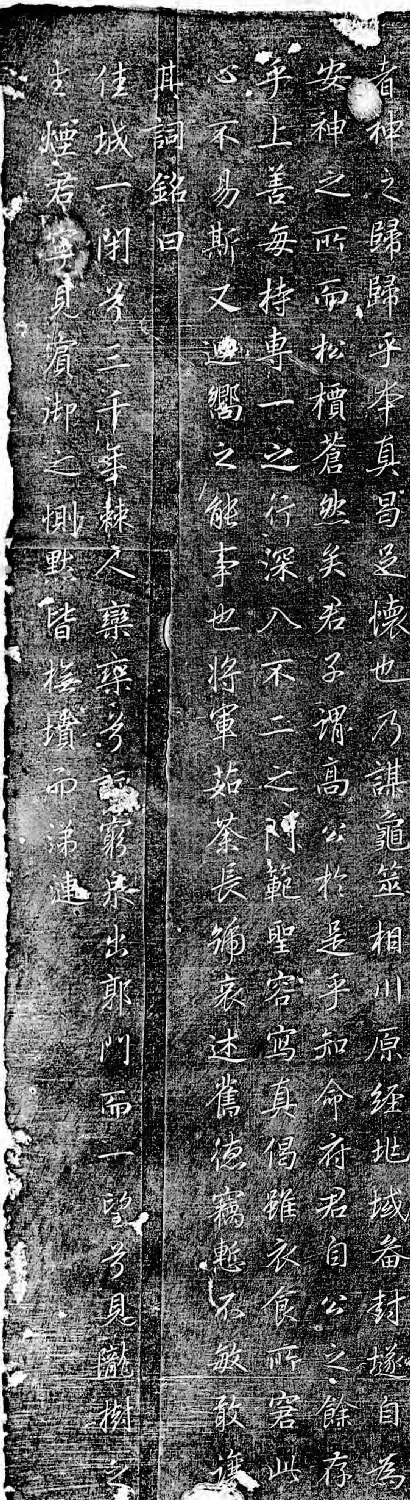 者神之歸歸乎本真曷足懷也乃謀龜筮相川原經地域备封墜自為
安神之所而松檟蒼然矣君子謂高公於是乎知命府君自公之餘存
乎上善每持專一之行深入不二之門範聖容寫真偈雖衣食所窘此
心不易斯又迴嚮之能事也將軍茹荼長號哀述舊德竊慙不敏敢讓
其詞銘曰
佳城一閉兮三千年棘人欒欒兮訴窮泉出郭門而一望兮見隴樹之
生煙君寧見賓御之惻默皆撫墳而涕漣